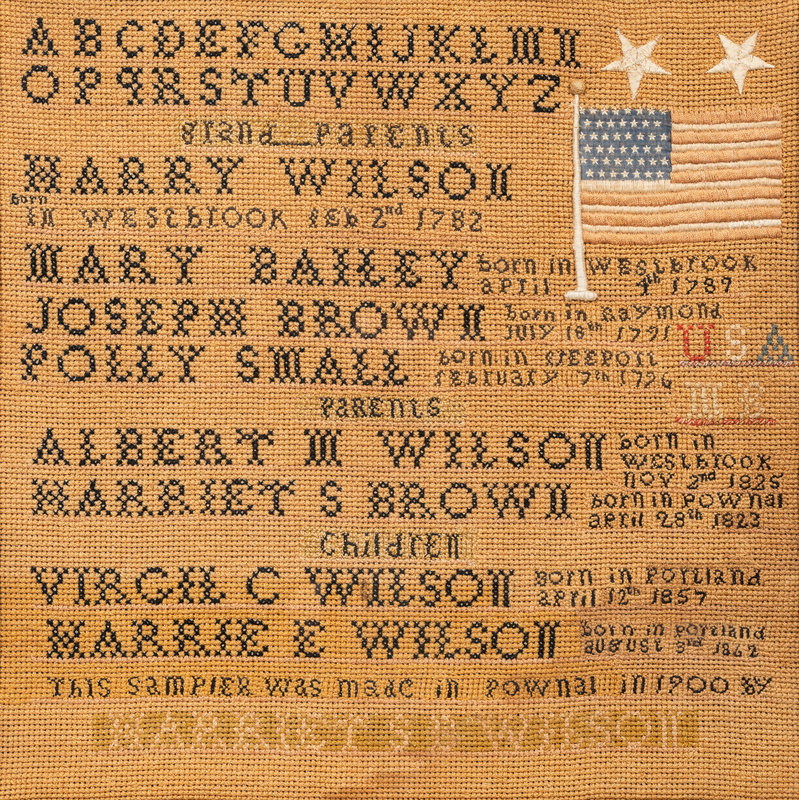 ABCDEFGHIJKLMN
OPQRSTUVWXYZ
Grand Parents
HARRY WILSON
born
in WEStbrook feb 2nd 1782
MARY BAILEY born in WEStbrook
april 4th 1787
JOSEPH BROWN born in Raymond
JULY 18th 1791
POLLY SMALL born in freeport
february 7th 1796
USA
ME
PARENtS
ALBERT M WILSON born in
WEStbrook
nov 2nd 1825
HARRIET S BROWN born in Pownal
april 28th 1823
Children
VIRGIL C WILSON born in Portland
april 12th 1857
HARRIE E WILSON born in Portland
august 3rd 1862
This Sampler was made in Pownal in 1900 by
HARRIET S B WILSON